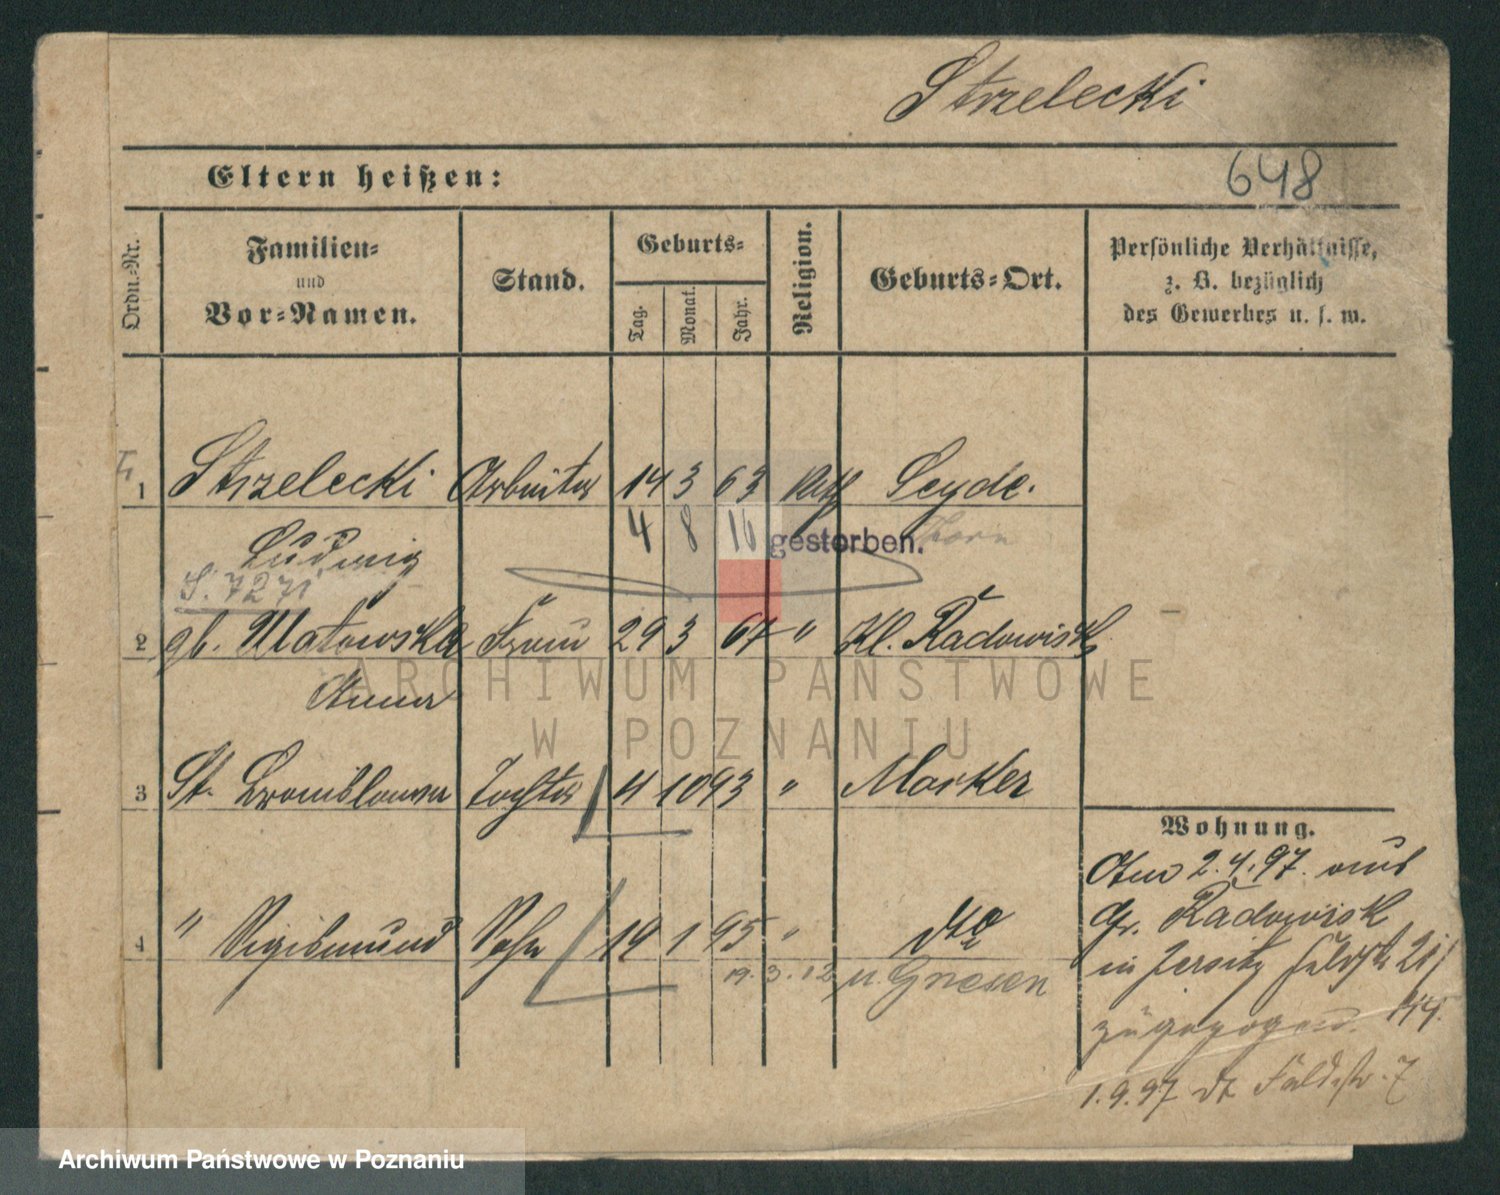 Strzelecki
648
Eltern heißen:
Ordn.-Nr.
Familien-
und
Vor-Namen.
Stand.
Geburts-
Tag.
Monat.
Jahr.
Religion.
Geburts-Ort.
Persönliche Verhältnisse,
z. B. bezüglich
des Gewerbes u. s. w.
1 Strzelecki Arbeiter 14 3 63 kath Seyde.
Ludwig 4 8 16 gestorben. Thorn
S. 7271
2 gb. Matowska Frau 29 3 67 " Kl. Radowisk
Anna
ARCHIWUM PAŃSTWOWE
W POZNANIU
3 St. Bronislawa Tochter 4 10 93 " Mocker
4 " Sigismund Sohn 14 1 95 " dto
19. 3. 12 n. Gnesen
Wohnung.
Am 2.4.97. aus
Gr. Radowisk
in Jersitz Feldstr 21
zugezogen.
1.9.97 dt Feldstr. 7
Archiwum Państwowe w Poznaniu